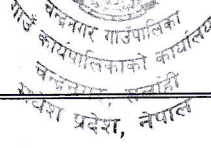 चन्द्रनगर गाउँपालिका
गाउँ कार्यपालिकाको कार्यालय
चन्द्रनगर, सर्लाही
प्रदेश, नेपाल